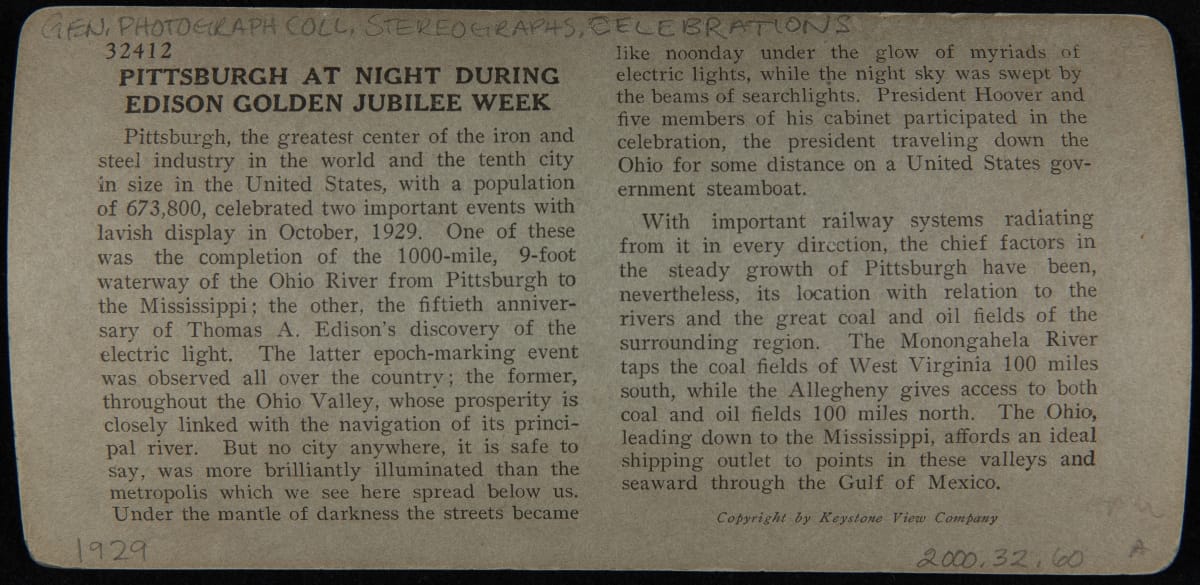 GEN. PHOTOGRAPH COLL. STEREOGRAPHS. CELEBRATIONS
32412
PITTSBURGH AT NIGHT DURING
EDISON GOLDEN JUBILEE WEEK
Pittsburgh, the greatest center of the iron and
steel industry in the world and the tenth city
in size in the United States, with a population
of 673,800, celebrated two important events with
lavish display in October, 1929. One of these
was the completion of the 1000-mile, 9-foot
waterway of the Ohio River from Pittsburgh to
the Mississippi; the other, the fiftieth anniver-
sary of Thomas A. Edison's discovery of the
electric light. The latter epoch-marking event
was observed all over the country; the former,
throughout the Ohio Valley, whose prosperity is
closely linked with the navigation of its princi-
pal river. But no city anywhere, it is safe to
say, was more brilliantly illuminated than the
metropolis which we see here spread below us.
Under the mantle of darkness the streets became
like noonday under the glow of myriads of
electric lights, while the night sky was swept by
the beams of searchlights. President Hoover and
five members of his cabinet participated in the
celebration, the president traveling down the
Ohio for some distance on a United States gov-
ernment steamboat.
With important railway systems radiating
from it in every direction, the chief factors in
the steady growth of Pittsburgh have been,
nevertheless, its location with relation to the
rivers and the great coal and oil fields of the
surrounding region. The Monongahela River
taps the coal fields of West Virginia 100 miles
south, while the Allegheny gives access to both
coal and oil fields 100 miles north. The Ohio,
leading down to the Mississippi, affords an ideal
shipping outlet to points in these valleys and
seaward through the Gulf of Mexico.
Copyright by Keystone View Company
1929
2000.32.60
A